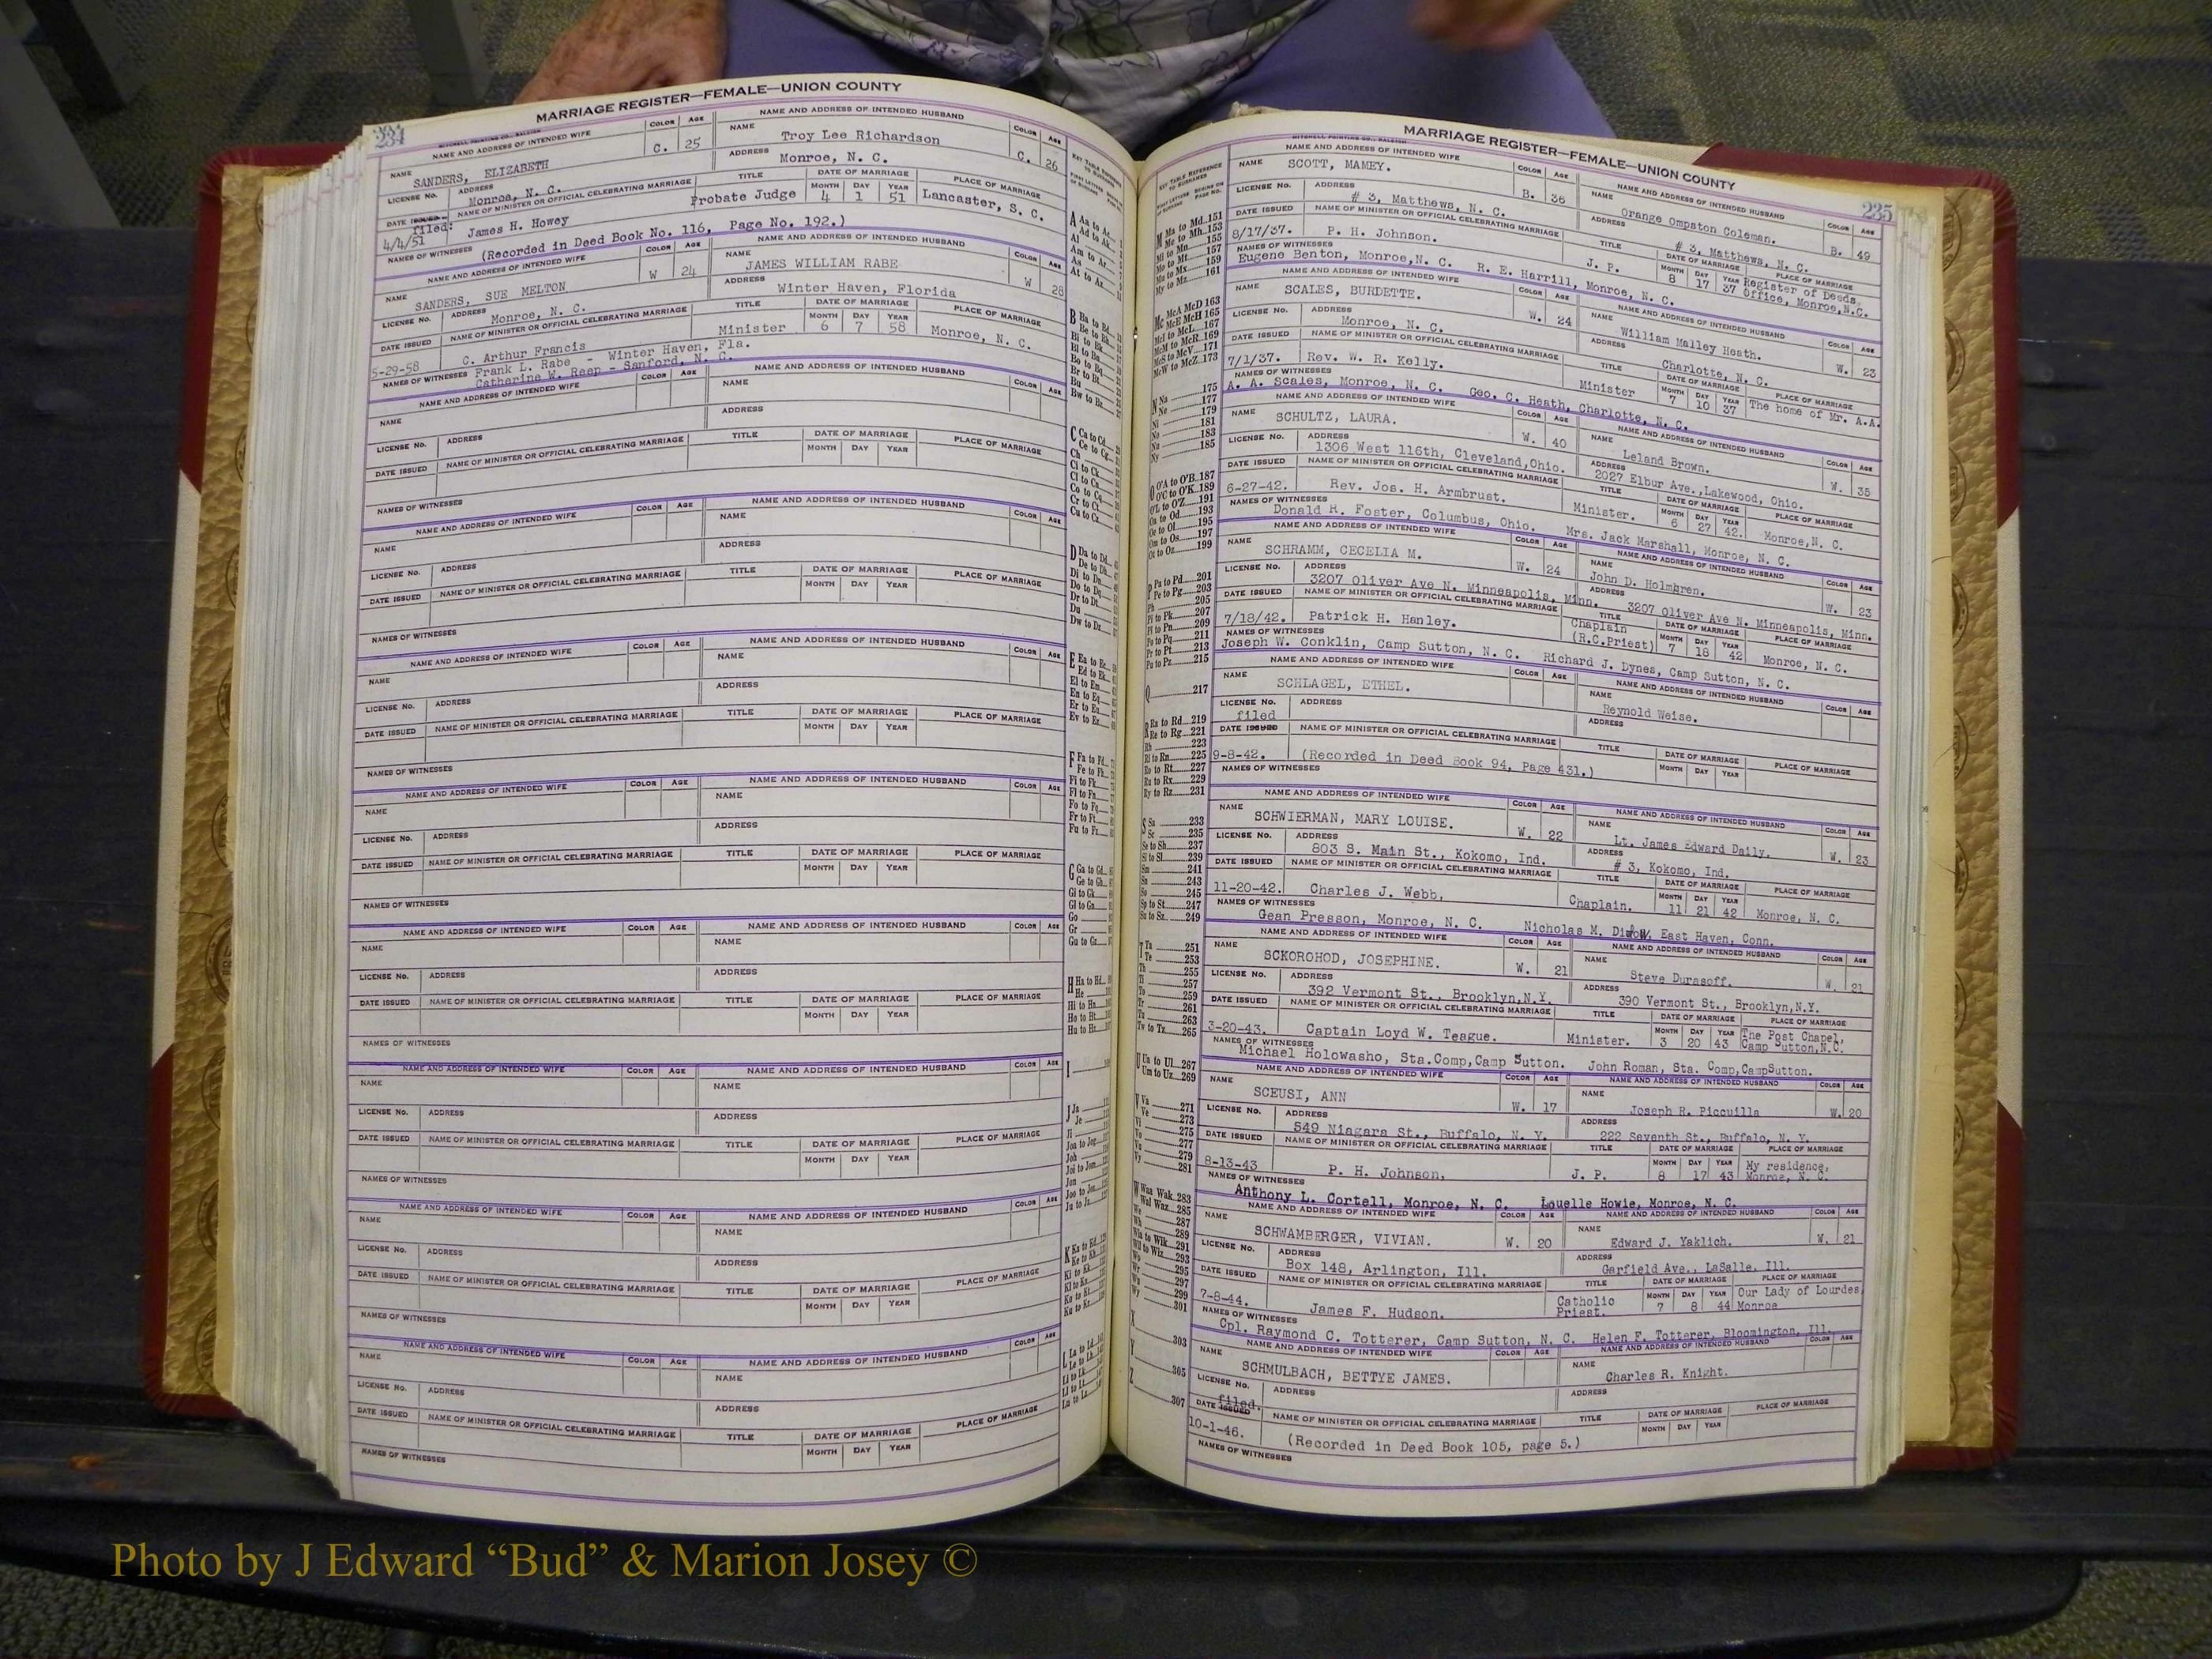 MARRIAGE REGISTER—FEMALE—UNION COUNTY
234
MITCHELL PRINTING CO., RALEIGH
NAME AND ADDRESS OF INTENDED WIFE COLOR AGE NAME AND ADDRESS OF INTENDED HUSBAND COLOR AGE
NAME SANDERS, ELIZABETH C. 25 NAME Troy Lee Richardson C. 26
LICENSE No. ADDRESS Monroe, N. C. ADDRESS Monroe, N. C.
DATE ISSUED NAME OF MINISTER OR OFFICIAL CELEBRATING MARRIAGE TITLE DATE OF MARRIAGE PLACE OF MARRIAGE
MONTH DAY YEAR
filed: 4/4/51 James H. Howey Probate Judge 4 1 51 Lancaster, S. C.
NAMES OF WITNESSES (Recorded in Deed Book No. 116, Page No. 192.)
NAME AND ADDRESS OF INTENDED WIFE COLOR AGE NAME AND ADDRESS OF INTENDED HUSBAND COLOR AGE
NAME SANDERS, SUE MELTON W 24 NAME JAMES WILLIAM RABE W 28
LICENSE No. ADDRESS Monroe, N. C. ADDRESS Winter Haven, Florida
DATE ISSUED NAME OF MINISTER OR OFFICIAL CELEBRATING MARRIAGE TITLE DATE OF MARRIAGE PLACE OF MARRIAGE
MONTH DAY YEAR
5-29-58 C. Arthur Francis Minister 6 7 58 Monroe, N. C.
NAMES OF WITNESSES Frank L. Rabe - Winter Haven, Fla.
Catherine W. Reep - Sanford, N. C.
NAME AND ADDRESS OF INTENDED WIFE COLOR AGE NAME AND ADDRESS OF INTENDED HUSBAND COLOR AGE
NAME NAME
LICENSE No. ADDRESS ADDRESS
DATE ISSUED NAME OF MINISTER OR OFFICIAL CELEBRATING MARRIAGE TITLE DATE OF MARRIAGE PLACE OF MARRIAGE
MONTH DAY YEAR
NAMES OF WITNESSES
NAME AND ADDRESS OF INTENDED WIFE COLOR AGE NAME AND ADDRESS OF INTENDED HUSBAND COLOR AGE
NAME NAME
LICENSE No. ADDRESS ADDRESS
DATE ISSUED NAME OF MINISTER OR OFFICIAL CELEBRATING MARRIAGE TITLE DATE OF MARRIAGE PLACE OF MARRIAGE
MONTH DAY YEAR
NAMES OF WITNESSES
NAME AND ADDRESS OF INTENDED WIFE COLOR AGE NAME AND ADDRESS OF INTENDED HUSBAND COLOR AGE
NAME NAME
LICENSE No. ADDRESS ADDRESS
DATE ISSUED NAME OF MINISTER OR OFFICIAL CELEBRATING MARRIAGE TITLE DATE OF MARRIAGE PLACE OF MARRIAGE
MONTH DAY YEAR
NAMES OF WITNESSES
NAME AND ADDRESS OF INTENDED WIFE COLOR AGE NAME AND ADDRESS OF INTENDED HUSBAND COLOR AGE
NAME NAME
LICENSE No. ADDRESS ADDRESS
DATE ISSUED NAME OF MINISTER OR OFFICIAL CELEBRATING MARRIAGE TITLE DATE OF MARRIAGE PLACE OF MARRIAGE
MONTH DAY YEAR
NAMES OF WITNESSES
NAME AND ADDRESS OF INTENDED WIFE COLOR AGE NAME AND ADDRESS OF INTENDED HUSBAND COLOR AGE
NAME NAME
LICENSE No. ADDRESS ADDRESS
DATE ISSUED NAME OF MINISTER OR OFFICIAL CELEBRATING MARRIAGE TITLE DATE OF MARRIAGE PLACE OF MARRIAGE
MONTH DAY YEAR
NAMES OF WITNESSES
NAME AND ADDRESS OF INTENDED WIFE COLOR AGE NAME AND ADDRESS OF INTENDED HUSBAND COLOR AGE
NAME NAME
LICENSE No. ADDRESS ADDRESS
DATE ISSUED NAME OF MINISTER OR OFFICIAL CELEBRATING MARRIAGE TITLE DATE OF MARRIAGE PLACE OF MARRIAGE
MONTH DAY YEAR
NAMES OF WITNESSES
NAME AND ADDRESS OF INTENDED WIFE COLOR AGE NAME AND ADDRESS OF INTENDED HUSBAND COLOR AGE
NAME NAME
LICENSE No. ADDRESS ADDRESS
DATE ISSUED NAME OF MINISTER OR OFFICIAL CELEBRATING MARRIAGE TITLE DATE OF MARRIAGE PLACE OF MARRIAGE
MONTH DAY YEAR
NAMES OF WITNESSES
NAME AND ADDRESS OF INTENDED WIFE COLOR AGE NAME AND ADDRESS OF INTENDED HUSBAND COLOR AGE
NAME NAME
LICENSE No. ADDRESS ADDRESS
DATE ISSUED NAME OF MINISTER OR OFFICIAL CELEBRATING MARRIAGE TITLE DATE OF MARRIAGE PLACE OF MARRIAGE
MONTH DAY YEAR
NAMES OF WITNESSES
MARRIAGE REGISTER—FEMALE—UNION COUNTY
235
MITCHELL PRINTING CO., RALEIGH
NAME AND ADDRESS OF INTENDED WIFE COLOR AGE NAME AND ADDRESS OF INTENDED HUSBAND COLOR AGE
NAME SCOTT, MAMEY. B. 36 NAME Orange Ompston Coleman. B. 49
LICENSE No. ADDRESS # 3, Matthews, N. C. ADDRESS # 3, Matthews, N. C.
DATE ISSUED NAME OF MINISTER OR OFFICIAL CELEBRATING MARRIAGE TITLE DATE OF MARRIAGE PLACE OF MARRIAGE
MONTH DAY YEAR
8/17/37. P. H. Johnson. J. P. 8 17 37 Register of Deeds, Office, Monroe,N.C.
NAMES OF WITNESSES
Eugene Benton, Monroe,N. C. R. E. Harrill, Monroe, N. C.
NAME AND ADDRESS OF INTENDED WIFE COLOR AGE NAME AND ADDRESS OF INTENDED HUSBAND COLOR AGE
NAME SCALES, BURDETTE. W. 24 NAME William Malley Heath. W. 23
LICENSE No. ADDRESS Monroe, N. C. ADDRESS Charlotte, N. C.
DATE ISSUED NAME OF MINISTER OR OFFICIAL CELEBRATING MARRIAGE TITLE DATE OF MARRIAGE PLACE OF MARRIAGE
MONTH DAY YEAR
7/1/37. Rev. W. R. Kelly. Minister 7 10 37 The home of Mr. A.A.
NAMES OF WITNESSES
A. A. Scales, Monroe, N. C. Geo. C. Heath, Charlotte, N. C.
NAME AND ADDRESS OF INTENDED WIFE COLOR AGE NAME AND ADDRESS OF INTENDED HUSBAND COLOR AGE
NAME SCHULTZ, LAURA. W. 40 NAME Leland Brown. W. 35
LICENSE No. ADDRESS 1306 West 116th, Cleveland,Ohio. ADDRESS 2027 Elbur Ave.,Lakewood, Ohio.
DATE ISSUED NAME OF MINISTER OR OFFICIAL CELEBRATING MARRIAGE TITLE DATE OF MARRIAGE PLACE OF MARRIAGE
MONTH DAY YEAR
6-27-42. Rev. Jos. H. Armbrust. Minister. 6 27 42. Monroe,N. C.
NAMES OF WITNESSES
Donald R. Foster, Columbus, Ohio. Mrs. Jack Marshall, Monroe, N. C.
NAME AND ADDRESS OF INTENDED WIFE COLOR AGE NAME AND ADDRESS OF INTENDED HUSBAND COLOR AGE
NAME SCHRAMM, CECELIA M. W. 24 NAME John D. Holmbren. W. 23
LICENSE No. ADDRESS 3207 Oliver Ave N. Minneapolis, Minn. ADDRESS 3207 Oliver Ave N. Minneapolis, Minn.
DATE ISSUED NAME OF MINISTER OR OFFICIAL CELEBRATING MARRIAGE TITLE DATE OF MARRIAGE PLACE OF MARRIAGE
MONTH DAY YEAR
7/18/42. Patrick H. Hanley. Chaplain (R.C.Priest) 7 18 42 Monroe, N. C.
NAMES OF WITNESSES
Joseph W. Conklin, Camp Sutton, N. C. Richard J. Dynes, Camp Sutton, N. C.
NAME AND ADDRESS OF INTENDED WIFE COLOR AGE NAME AND ADDRESS OF INTENDED HUSBAND COLOR AGE
NAME SCHLAGEL, ETHEL. NAME Reynold Weise.
LICENSE No. ADDRESS ADDRESS
filed
DATE ISSUED NAME OF MINISTER OR OFFICIAL CELEBRATING MARRIAGE TITLE DATE OF MARRIAGE PLACE OF MARRIAGE
MONTH DAY YEAR
9-8-42. (Recorded in Deed Book 94, Page 431.)
NAMES OF WITNESSES
NAME AND ADDRESS OF INTENDED WIFE COLOR AGE NAME AND ADDRESS OF INTENDED HUSBAND COLOR AGE
NAME SCHWIERMAN, MARY LOUISE. W. 22 NAME Lt. James Edward Daily. W. 23
LICENSE No. ADDRESS 803 S. Main St., Kokomo, Ind. ADDRESS # 3, Kokomo, Ind.
DATE ISSUED NAME OF MINISTER OR OFFICIAL CELEBRATING MARRIAGE TITLE DATE OF MARRIAGE PLACE OF MARRIAGE
MONTH DAY YEAR
11-20-42. Charles J. Webb, Chaplain. 11 21 42 Monroe, N. C.
NAMES OF WITNESSES
Gean Presson, Monroe, N. C. Nicholas M. East Haven, Conn.
NAME AND ADDRESS OF INTENDED WIFE COLOR AGE NAME AND ADDRESS OF INTENDED HUSBAND COLOR AGE
NAME SCKOROHOD, JOSEPHINE. W. 21 NAME Steve Durasoff. W. 21
LICENSE No. ADDRESS 392 Vermont St., Brooklyn,N.Y. ADDRESS 390 Vermont St., Brooklyn,N.Y.
DATE ISSUED NAME OF MINISTER OR OFFICIAL CELEBRATING MARRIAGE TITLE DATE OF MARRIAGE PLACE OF MARRIAGE
MONTH DAY YEAR
3-20-43. Captain Loyd W. Teague. Minister. 3 20 43 The Post Chapel, Camp Sutton,N.C.
NAMES OF WITNESSES
Michael Holowasho, Sta.Comp,Camp Sutton. John Roman, Sta. Comp,CampSutton.
NAME AND ADDRESS OF INTENDED WIFE COLOR AGE NAME AND ADDRESS OF INTENDED HUSBAND COLOR AGE
NAME SCEUSI, ANN W. 17 NAME Joseph R. Piccuilla W. 20
LICENSE No. ADDRESS 549 Niagara St., Buffalo, N. Y. ADDRESS 222 Seventh St., Buffalo, N. Y.
DATE ISSUED NAME OF MINISTER OR OFFICIAL CELEBRATING MARRIAGE TITLE DATE OF MARRIAGE PLACE OF MARRIAGE
MONTH DAY YEAR
8-13-43 P. H. Johnson, J. P. 8 17 43 My residence, Monroe, N. C.
NAMES OF WITNESSES
Anthony L. Cortell, Monroe, N. C. Louelle Howie, Monroe, N. C.
NAME AND ADDRESS OF INTENDED WIFE COLOR AGE NAME AND ADDRESS OF INTENDED HUSBAND COLOR AGE
NAME SCHWAMBERGER, VIVIAN. W. 20 NAME Edward J. Yaklich. W. 21
LICENSE No. ADDRESS Box 148, Arlington, Ill. ADDRESS Garfield Ave., LaSalle, Ill.
DATE ISSUED NAME OF MINISTER OR OFFICIAL CELEBRATING MARRIAGE TITLE DATE OF MARRIAGE PLACE OF MARRIAGE
MONTH DAY YEAR
7-8-44. James F. Hudson. Catholic Priest. 7 8 44 Our Lady of Lourdes, Monroe
NAMES OF WITNESSES
Cpl. Raymond C. Totterer, Camp Sutton, N. C. Helen F. Totterer, Bloomington, Ill.
NAME AND ADDRESS OF INTENDED WIFE COLOR AGE NAME AND ADDRESS OF INTENDED HUSBAND COLOR AGE
NAME SCHMULBACH, BETTYE JAMES. NAME Charles R. Knight.
LICENSE No. ADDRESS ADDRESS
filed.
DATE ISSUED NAME OF MINISTER OR OFFICIAL CELEBRATING MARRIAGE TITLE DATE OF MARRIAGE PLACE OF MARRIAGE
MONTH DAY YEAR
10-1-46. (Recorded in Deed Book 105, page 5.)
NAMES OF WITNESSES
Photo by J Edward “Bud” & Marion Josey ©